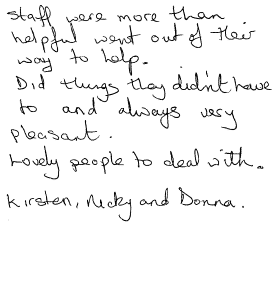 Staff were more than
helpful went out of their
way to help.
Did things they didn't have
to and always very
pleasant.
Lovely people to deal with.
Kirsten, Nicky and Donna.